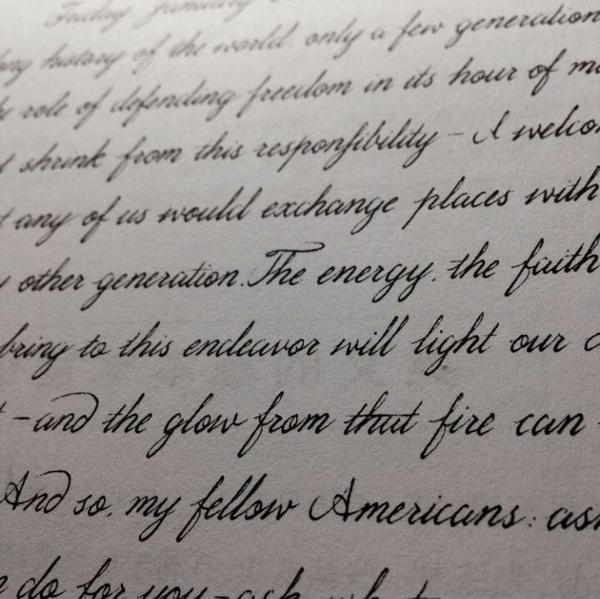 Friday January
history of the world, only a few generation
role of defending freedom in its hour of
shrink from this responsibility – I
any of us would exchange places with
other generation. The energy, the faith
bring to this endeavor will light our
– and the glow from that fire can
And so, my fellow Americans: ask
do for you – ask what